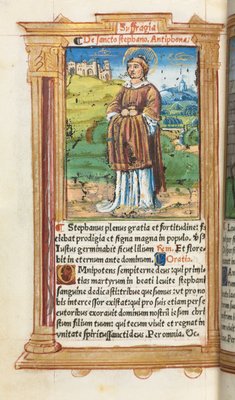 Suffragia
De sancto stephano. Antiphona.
Stephanus plenus gratia et fortitudine: fa
ciebat prodigia et signa magna in populo.
Iustus germinabit sicut lilium Rem. Et flore
bit in eternum ante dominum. Oratio.
OMnipotens sempiterne deus: qui primi
tias martyrum in beati leuite stephani
sanguine dedicasti: tribue quesumus: vt pro no
bis intercessor existat: qui pro suis etiam perse
cutoribus exorauit dominum nostrum iesum christ
filium tuum: qui tecum viuit et regnat in
vnitate spiritussancti deus. Per omnia. &c.